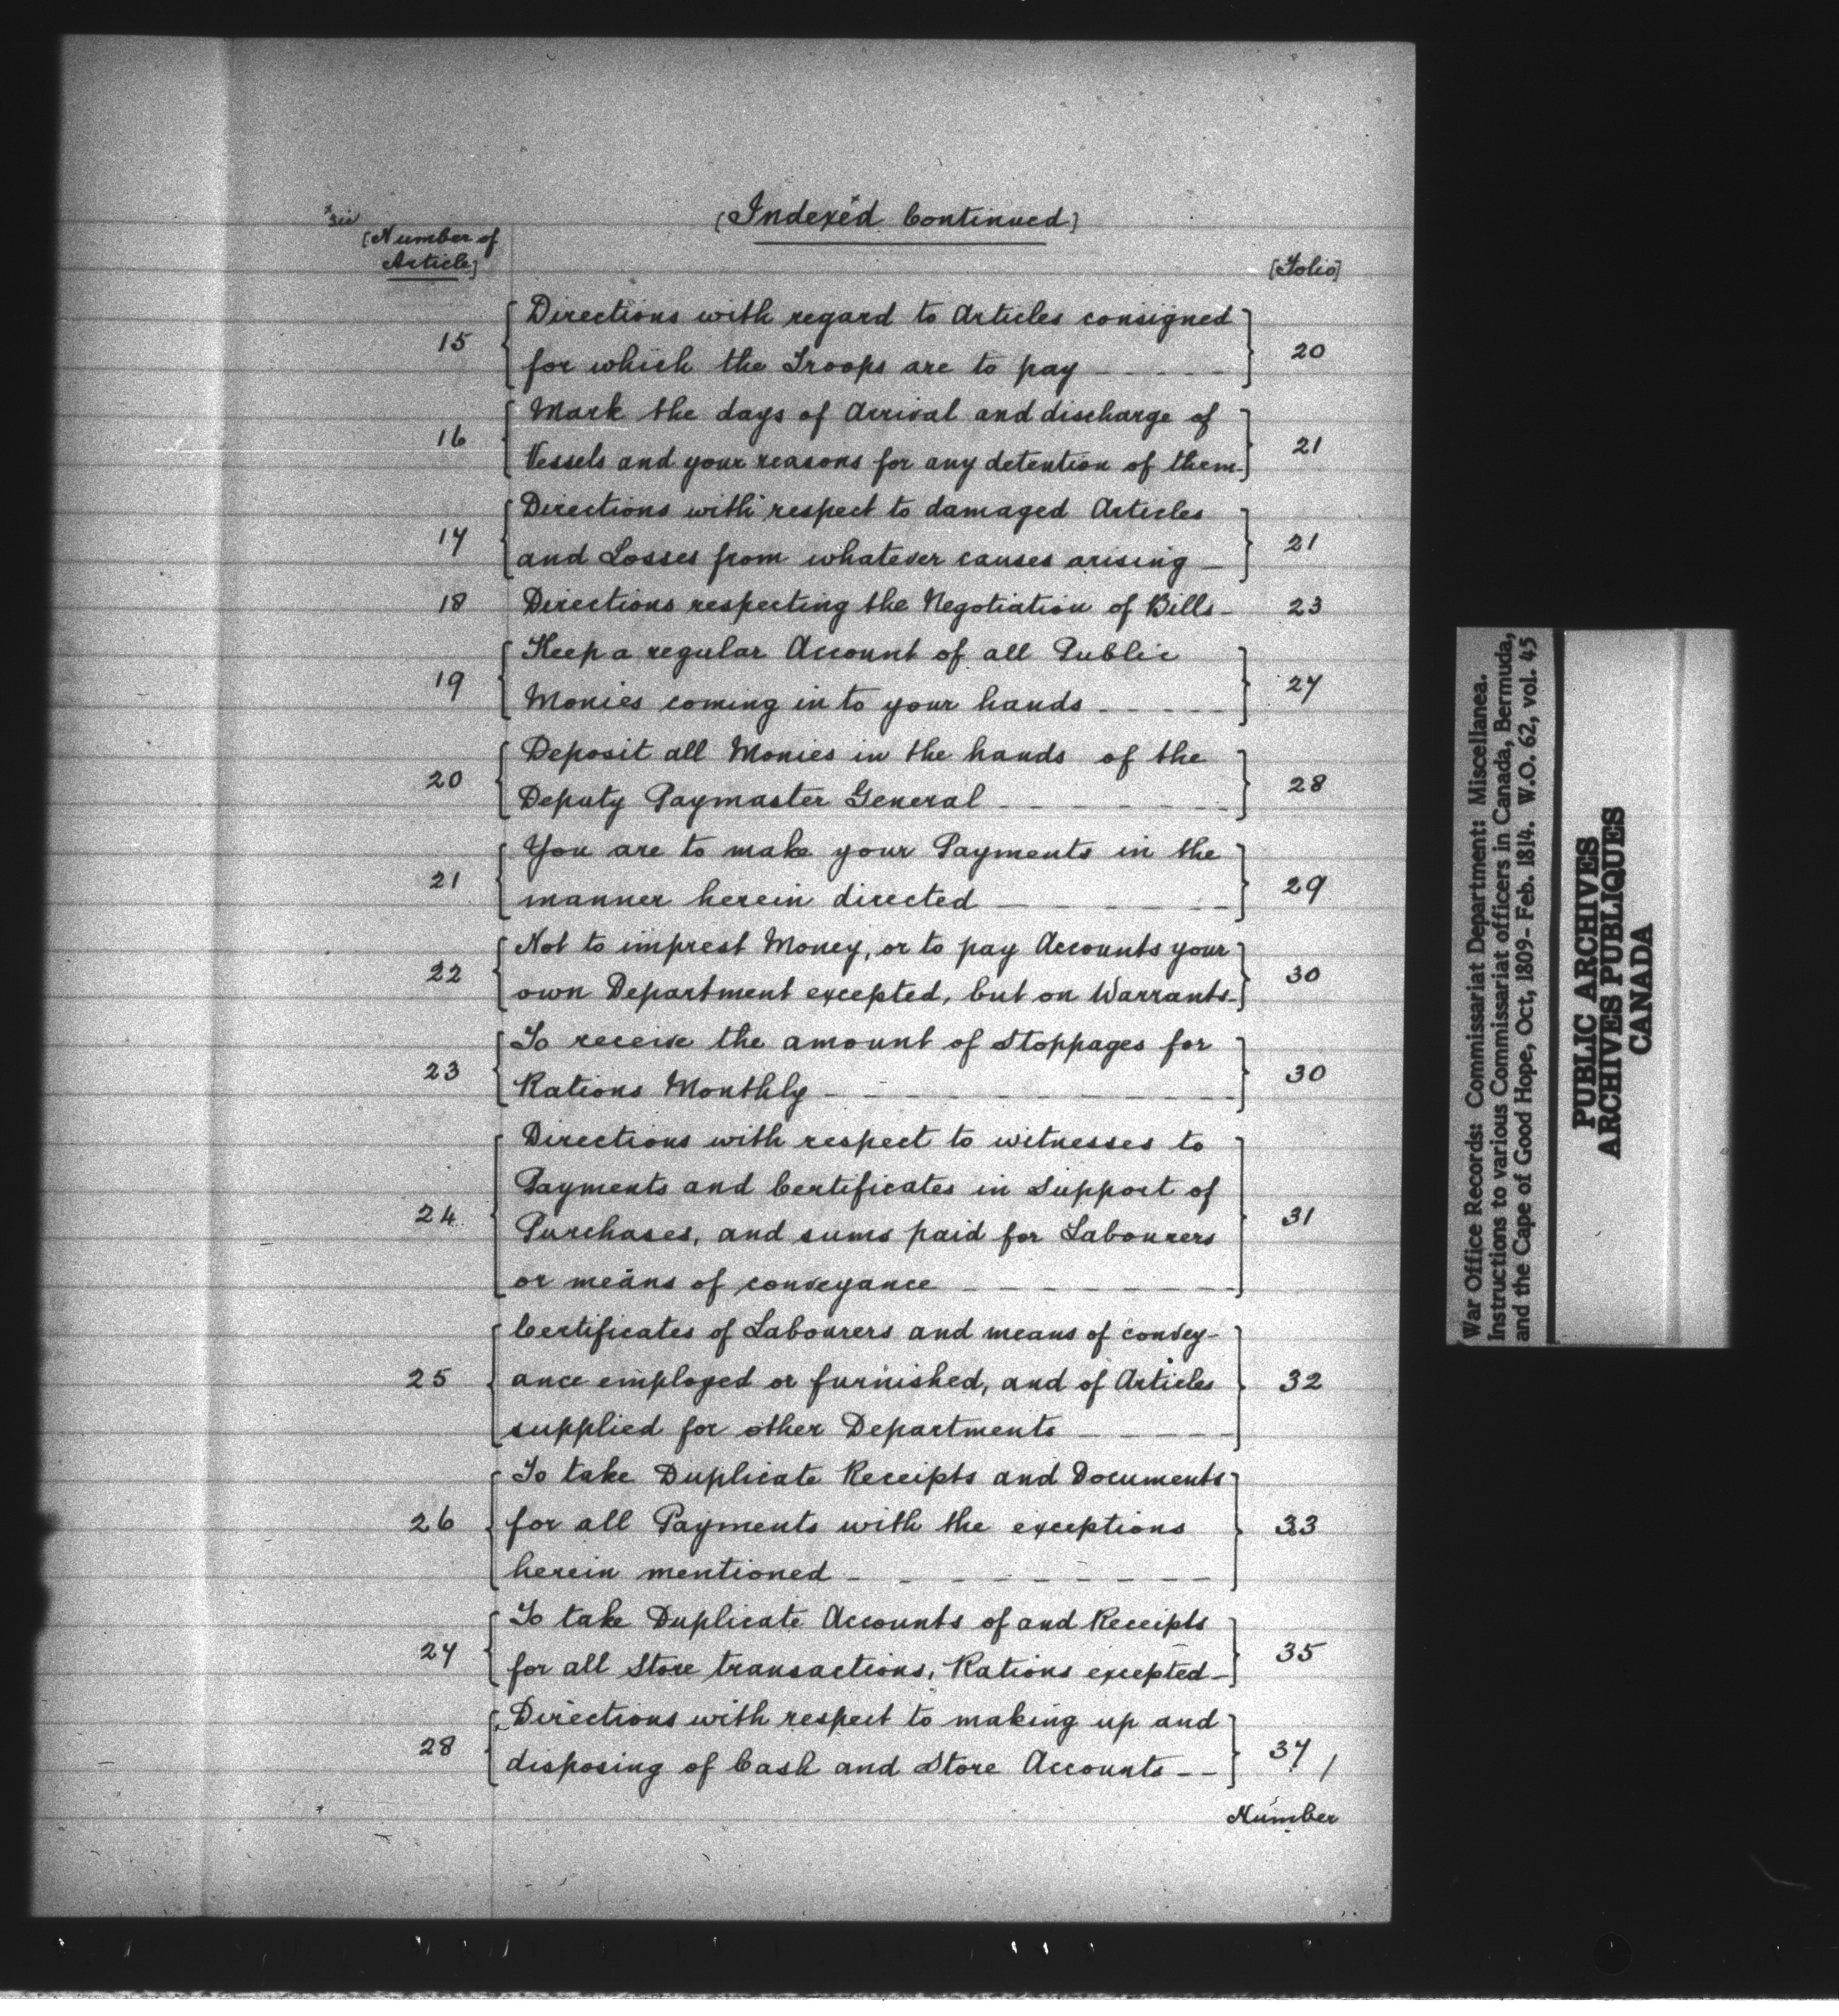 (Indexed Continued)
[Number of
Article]
[Folio]
Directions with regard to Articles consigned
15 for which the Troops are to pay 20
Mark the days of Arrival and discharge of
16 Vessels and your reasons for any detention of them 21
Directions with respect to damaged Articles
17 and Losses from whatever causes arising 21
18 Directions respecting the Negotiation of Bills 23
Keep a regular Account of all Public
19 Monies coming in to your hands 27
Deposit all Monies in the hands of the
20 Deputy Paymaster General 28
You are to make your Payments in the
21 manner herein directed 29
Not to imprest Money, or to pay Accounts your
22 own Department excepted, but on Warrants 30
To receive the amount of Stoppages for
23 Rations Monthly 30
Directions with respect to witnesses to
Payments and Certificates in Support of
24 Purchases, and sums paid for Labourers 31
or means of conveyance
Certificates of Labourers and means of convey-
25 ance employed or furnished, and of Articles 32
supplied for other Departments
To take Duplicate Receipts and Documents
26 for all Payments with the exceptions 33
herein mentioned
To take Duplicate Accounts of and Receipts
27 for all Store transactions, Rations excepted 35
Directions with respect to making up and
28 disposing of Cash and Store Accounts 37 /
Number
War Office Records: Commissariat Department: Miscellanea.
Instructions to various Commissariat officers in Canada, Bermuda,
and the Cape of Good Hope, Oct, 1809- Feb. 1814. W.O. 62, vol. 45
PUBLIC ARCHIVES
ARCHIVES PUBLIQUES
CANADA